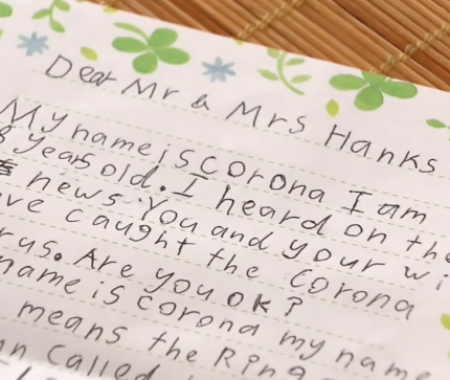 Dear Mr & Mrs Hanks
My name is corona I am
8 years old. I heard on the
news. You and your wi
ve caught the corona
rus. Are you OK?
name is corona my name
means the Ring
n called